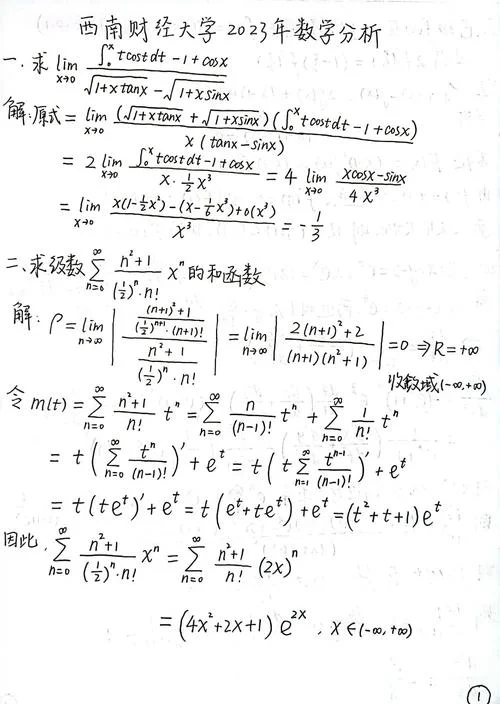 西南财经大学2023年数学分析
一. 求 lim_{x→0} (∫_0^x tcostdt -1+cosx) / (√(1+xtanx) - √(1+xsinx))
解:原式 = lim_{x→0} (√(1+xtanx) + √(1+xsinx))(∫_0^x tcostdt -1+cosx) / (x(tanx-sinx))
= 2 lim_{x→0} (∫_0^x tcostdt -1+cosx) / (x·½x³) = 4 lim_{x→0} (xcosx-sinx) / (4x³)
= lim_{x→0} (x(1-½x²)-(x-⅙x³)+o(x³)) / x³ = -1/3
二、求级数 ∑_{n=0}^∞ (n²+1)/((½)^n·n!) x^n 的和函数
解: ρ = lim_{n→∞} | ((n+1)²+1)/((½)^{n+1}·(n+1)!) / ((n²+1)/((½)^n·n!)) | = lim_{n→∞} | (2(n+1)²+2)/((n+1)(n²+1)) | = 0 ⇒ R=+∞
收敛域(-∞,+∞)
令 m(t) = ∑_{n=0}^∞ (n²+1)/n! t^n = ∑_{n=0}^∞ n/(n-1)! t^n + ∑_{n=0}^∞ 1/n! t^n
= t(∑_{n=0}^∞ t^n/(n-1)!)' + e^t = t(t∑_{n=1}^∞ t^{n-1}/(n-1)!)' + e^t
= t(te^t)' + e^t = t(e^t+te^t) + e^t = (t²+t+1)e^t
因此, ∑_{n=0}^∞ (n²+1)/((½)^n·n!) x^n = ∑_{n=0}^∞ (n²+1)/n! (2x)^n
= (4x²+2x+1) e^{2x} , x∈(-∞,+∞)
1